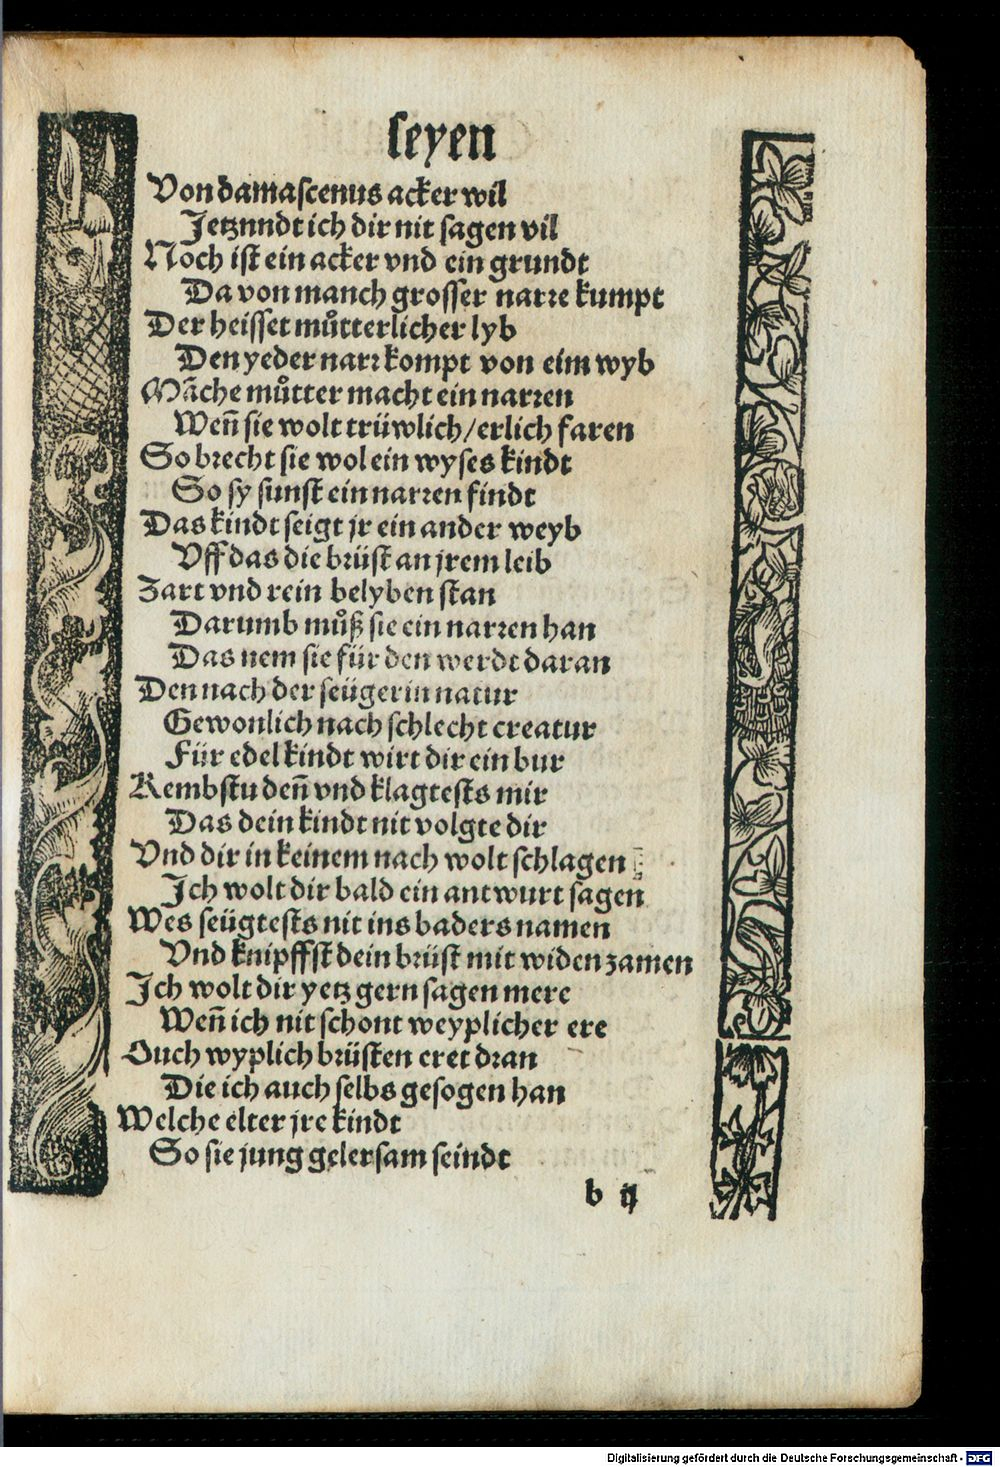 seyen
Von damascenus acker wil
Jetznndt ich dir nit sagen vil
Noch ist ein acker vnd ein grundt
Da von manch grosser narre kumpt
Der heisset můtterlicher lyb
Den yeder narr kompt von eim wyb
Mãche můtter macht ein narren
Weñ sie wolt trüwlich/erlich faren
So brecht sie wol ein wyses kindt
So sy sunst ein narren findt
Das kindt seigt jr ein ander weyb
Vff das die brüst an jrem leib
Zart vnd rein belyben stan
Darumb můß sie ein narren han
Das nem sie für den werdt daran
Den nach der seügerin natur
Gewonlich nach schlecht creatur
Für edel kindt wirt dir ein bur
Kembstu deñ vnd klagtests mir
Das dein kindt nit volgte dir
Vnd dir in keinem nach wolt schlagen
Ich wolt dir bald ein antwurt sagen
Wes seügtests nit ins baders namen
Vnd knipffst dein brüst mit widen zamen
Ich wolt dir yetz gern sagen mere
Weñ ich nit schont weyplicher ere
Ouch wyplich brüsten eret dran
Die ich auch selbs gesogen han
Welche elter jre kindt
So sie jung gelersam seindt
b ij
Digitalisierung gefördert durch die Deutsche Forschungsgemeinschaft - DFG